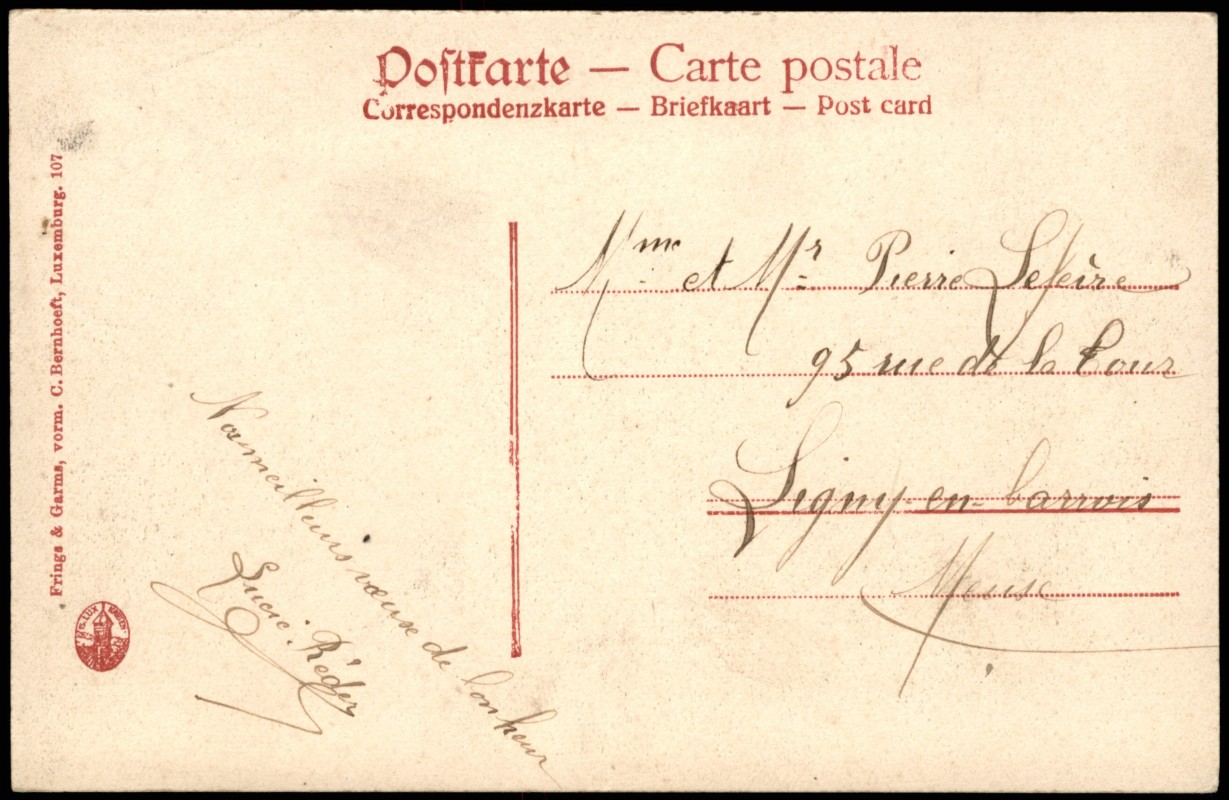 Postkarte — Carte postale
Correspondenzkarte — Briefkaart — Post card
Frings & Garms, vorm. C. Bernhoeft, Luxemburg. 107
Mme et Mr Pierre
95 rue de la Tour
Ligny-en-barrois
Meuse
meilleurs vœux de bonheur
Lucie. Réder